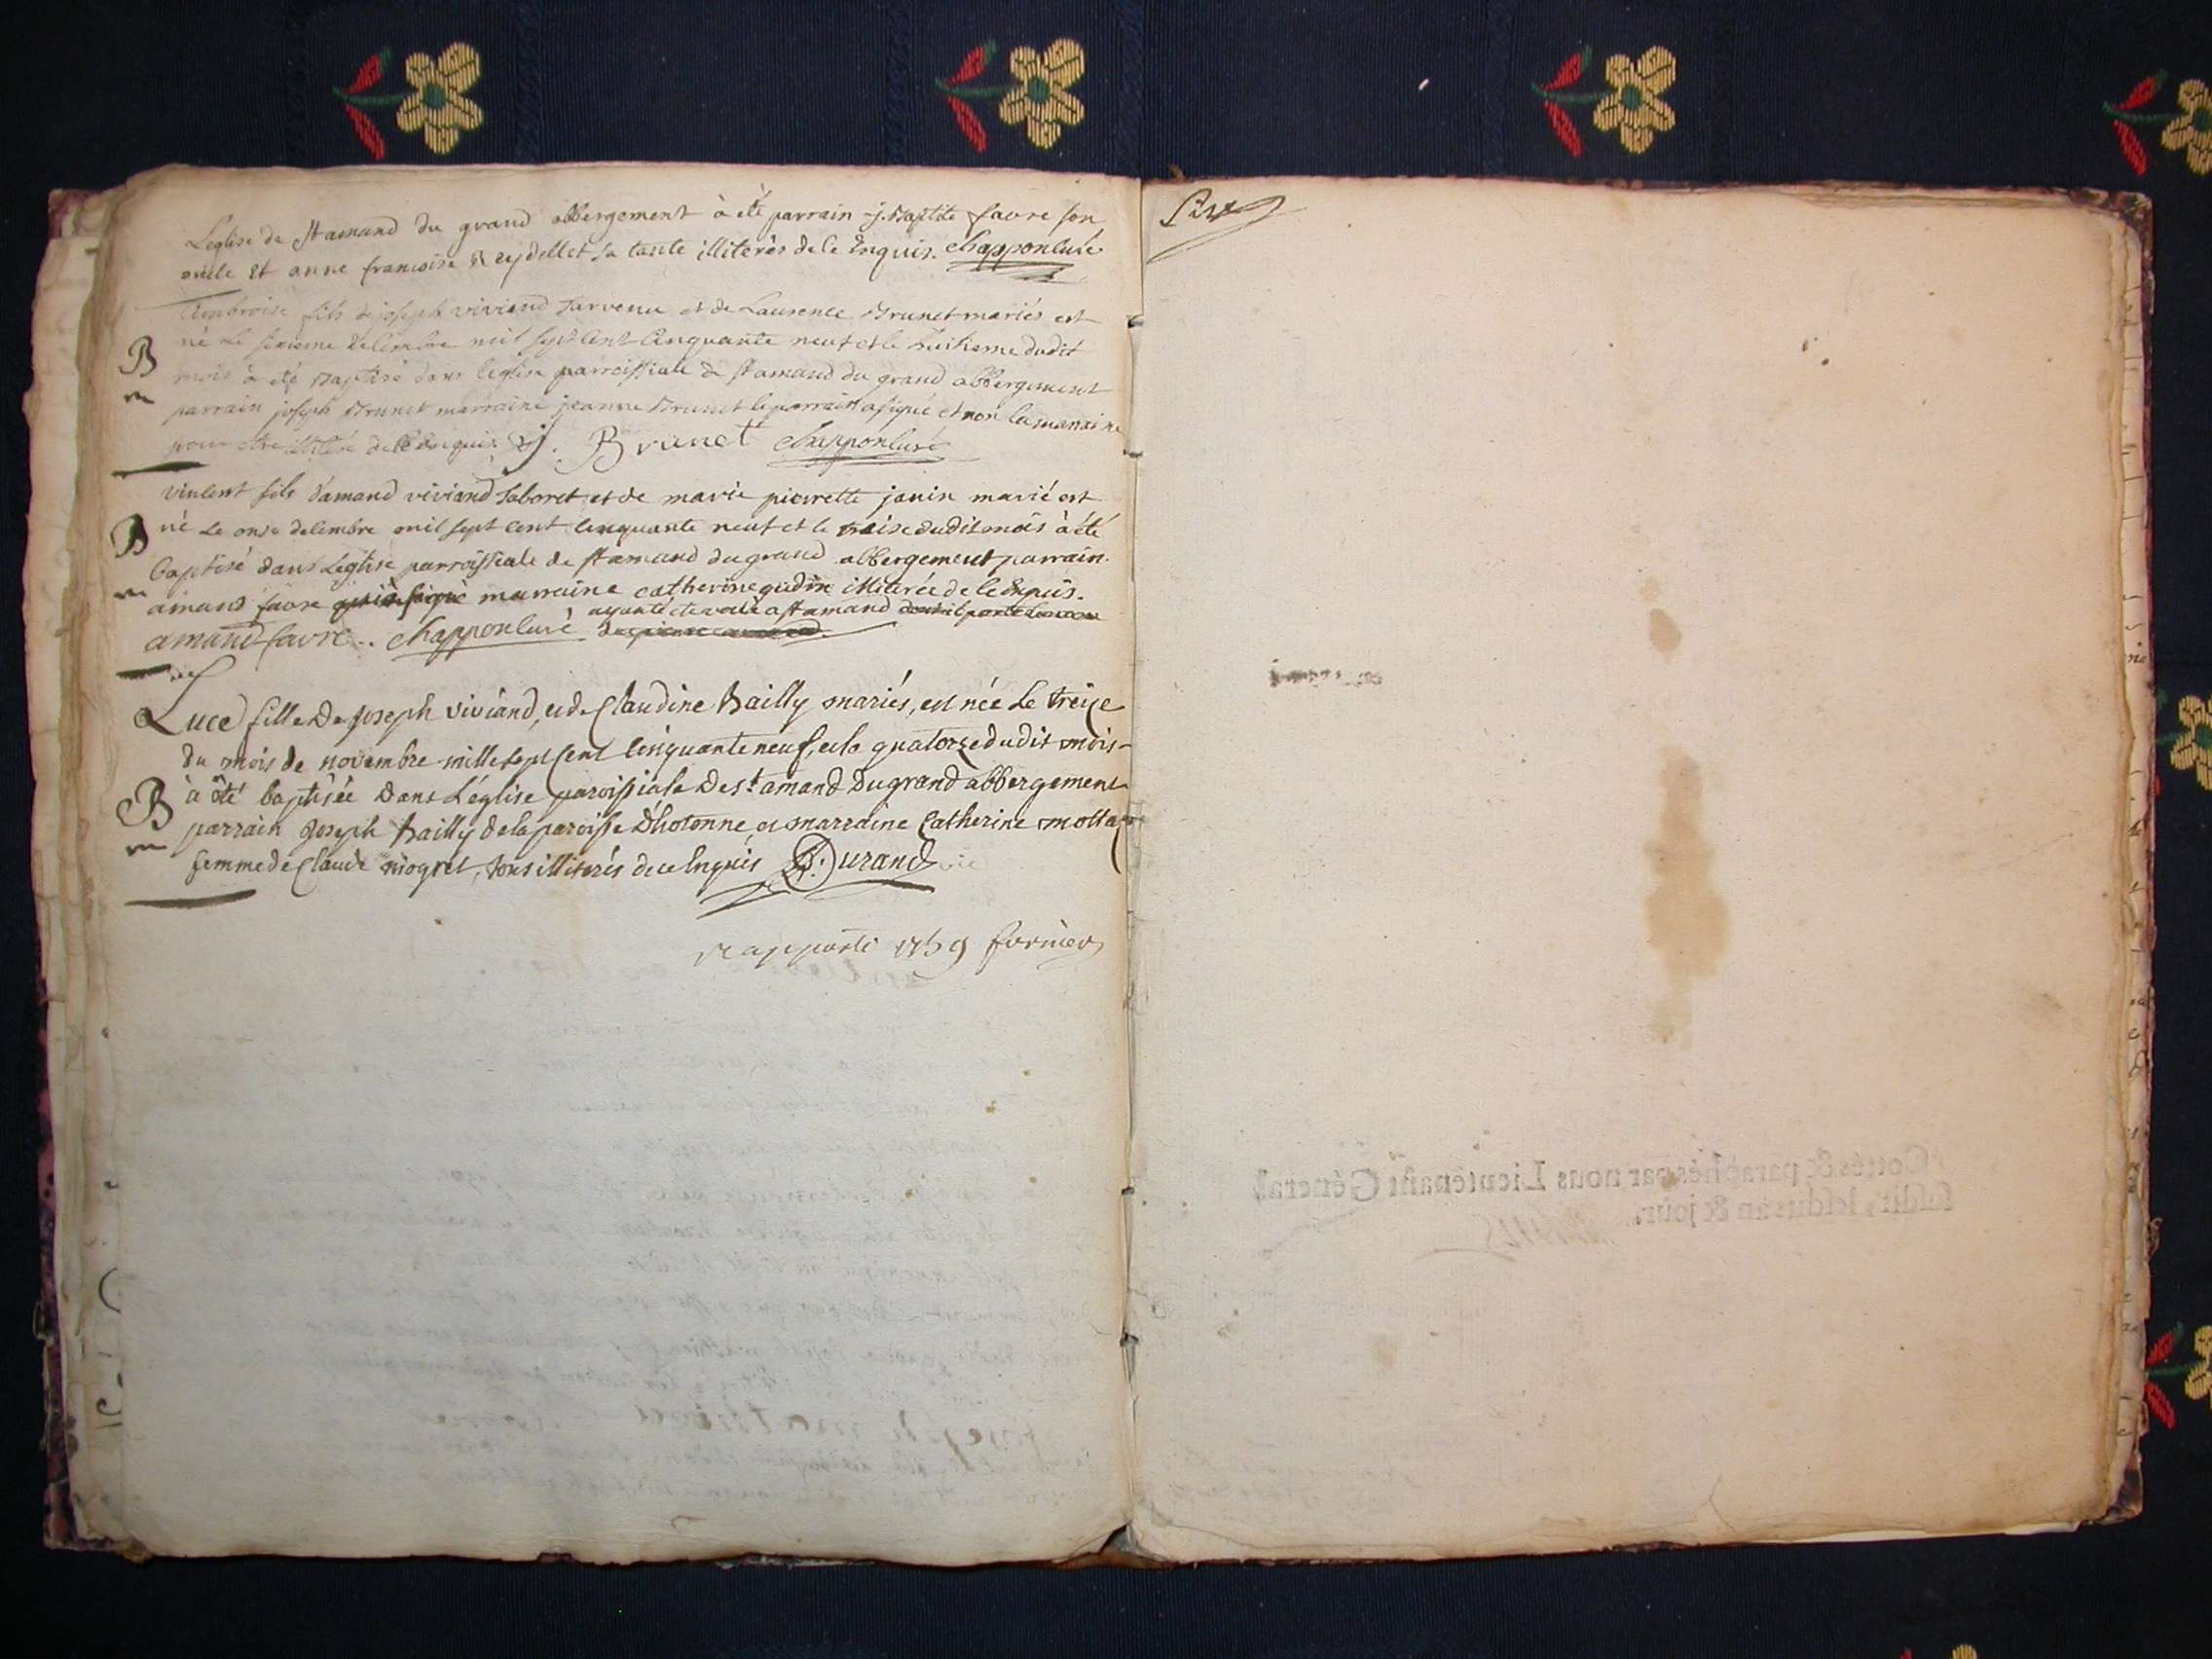 Léglise de St amand du grand abbergement à été parrain j. Baptite favre son
oncle et anne francoise Reydellet sa tante illiterés de ce Enquis. chapponluré
Ambroise fils de joseph viviand Tarvenu et de Laurence Brunet mariés est
né Le sixieme decembre mil sept cent cinquante neuf et le huitieme dudit
B mois à été Baptisé dans léglise parroissiale de st amand du grand abbergement
parrain joseph Brunet marraine jeanne Brunet le parrain a signé et non la marraine
pour être illitéré de ce enquis J. Brunet chapponluré
vincent fils d'amand viviand Taboret et de marie pierrette janin marié est
B né Le onse decembre mil sept cent cinquante neuf et le traise dudit mois à été
baptisé dans Léglise parroissiale de st amand du grand abbergement parrain
amand favre marraine catherine illiterée de ce Enquis.
a st amand
amand favre.. chapponluré
Luce fille De Joseph viviand, et de Claudine Bailly mariés, est née Le treize
du mois de novembre mille sept cent cinquante neuf, et le quatorze dudit mois
B à été baptisée Dans L'église paroissiale De st amand Du grand abbergement
parrain Joseph Bailly de la paroisse D'hotonne, et marraine Catherine
femme de Claude mogret, tous illiterés de ce Enquis B: Durand
rapporté 1759
Cottés & paraphés par nous Lieutenant Général
susdit, lesdits an & jour.